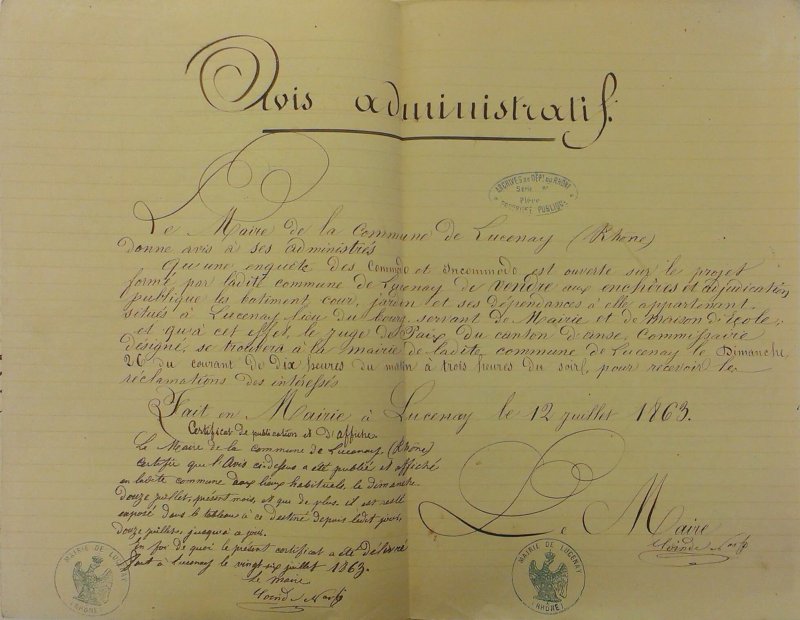 Avis administratif.
ARCHIVES DU DÉPT DU RHÔNE
Série
Pièce
PROPRIÉTÉ PUBLIQUE
Le Maire de la Commune de Lucenay (Rhône)
donne avis à ses administrés
qu'une enquête des Commodo et Incommodo est ouverte sur le projet
formé par ladite commune de Lucenay de vendre aux enchères et adjudication
publique les batiment, cour, jardin et ses dépendances à elle appartenant
situés à Lucenay lieu du bourg, servant de Mairie et de maison d'école;
et qu'à cet effet, le juge de Paix du canton d'anse, Commissaire
désigné, se trouvera à la mairie de ladite commune de Lucenay le Dimanche
26 du courant de dix heures du matin à trois heures du soir, pour recevoir les
réclamations des intéressés
Fait en Mairie à Lucenay le 12 juillet 1863.
Certificat de publication et d'affiche
Le Maire de la commune de Lucenay, (Rhône)
certifie que l'avis ci-dessus a été publié et affiché
en ladite commune aux lieux habituels le dimanche
douze juillet, présent mois, et que de plus, il est resté
exposé dans le tableau à ce destiné depuis ledit jour,
douze juillet, jusqu'à ce jour.
En foi de quoi le présent certificat a été délivré
fait à Lucenay le vingt six juillet 1863.
le maire
Le Maire
MAIRIE DE LUCENAY
(RHÔNE)
MAIRIE DE LUCENAY
(RHÔNE)